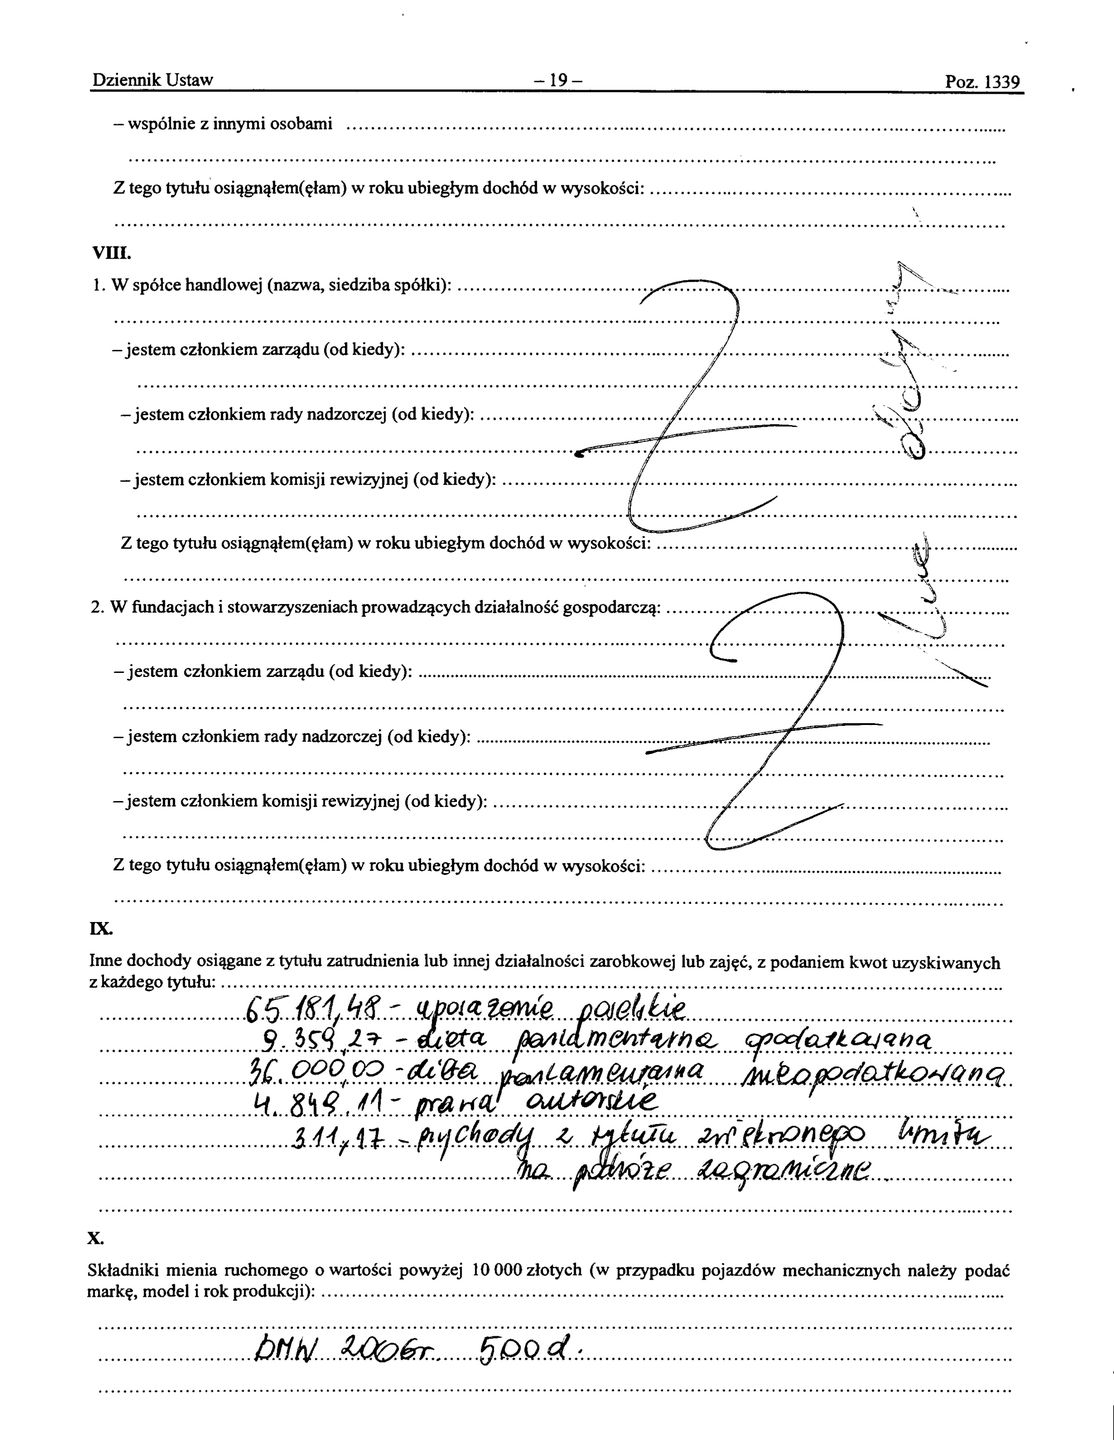 Dziennik Ustaw – 19 – Poz. 1339
– wspólnie z innymi osobami
Z tego tytułu osiągnąłem(ęłam) w roku ubiegłym dochód w wysokości:
VIII.
1. W spółce handlowej (nazwa, siedziba spółki):
– jestem członkiem zarządu (od kiedy):
– jestem członkiem rady nadzorczej (od kiedy):
– jestem członkiem komisji rewizyjnej (od kiedy):
Z tego tytułu osiągnąłem(ęłam) w roku ubiegłym dochód w wysokości:
2. W fundacjach i stowarzyszeniach prowadzących działalność gospodarczą:
– jestem członkiem zarządu (od kiedy):
– jestem członkiem rady nadzorczej (od kiedy):
– jestem członkiem komisji rewizyjnej (od kiedy):
Z tego tytułu osiągnąłem(ęłam) w roku ubiegłym dochód w wysokości:
nie
IX.
Inne dochody osiągane z tytułu zatrudnienia lub innej działalności zarobkowej lub zajęć, z podaniem kwot uzyskiwanych
z każdego tytułu:
65.181,48 - uposażenie poselskie
9.359,27 - dieta parlamentarna opodatkowana
36.000,00 - dieta parlamentarna nieopodatkowana
4.849,11 - prawa autorskie
311,17 - przychody z tytułu zwiękronego limitu
na podróże zagraniczne
X.
Składniki mienia ruchomego o wartości powyżej 10 000 złotych (w przypadku pojazdów mechanicznych należy podać
markę, model i rok produkcji):
BMW 2006r 500d.